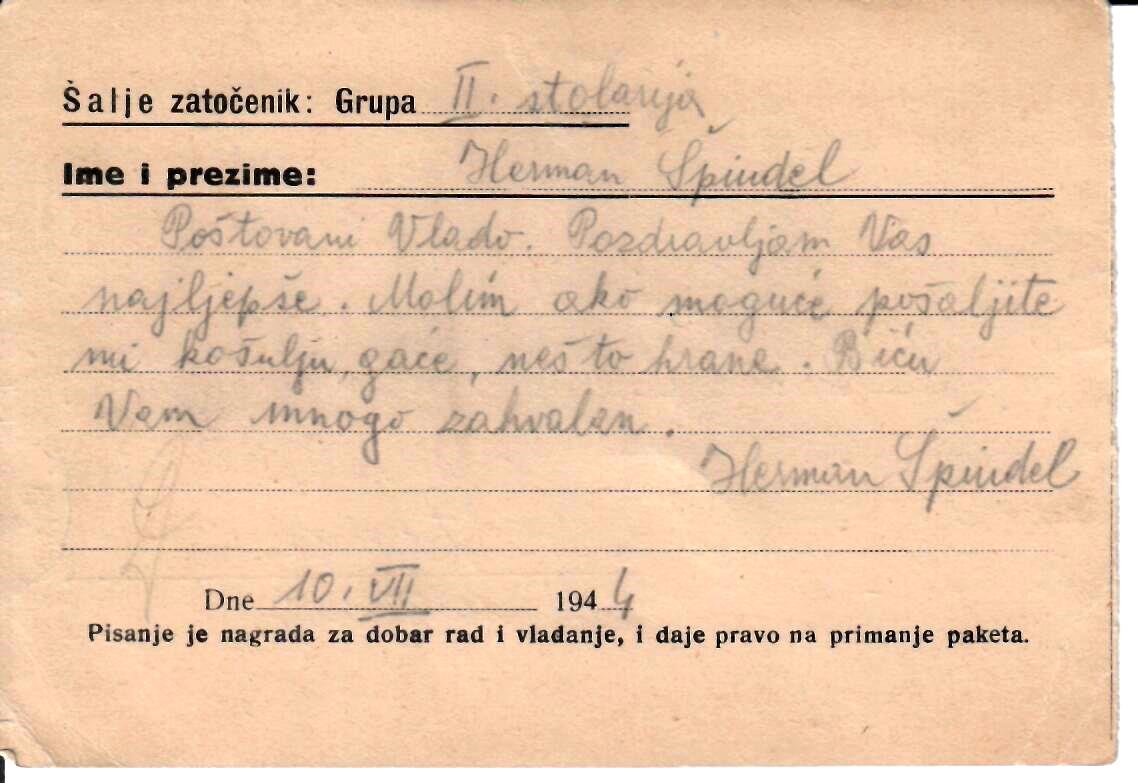 Šalje zatočenik: Grupa II. stolarija
Ime i prezime: Herman Špindel
Poštovani Vlado. Pozdravljam Vas
najljepše. Molim ako moguće pošaljite
mi košulju, gaće, nešto hrane. Biću
Vam mnogo zahvalan.
Herman Špindel
Dne 10. VII 1944
Pisanje je nagrada za dobar rad i vladanje, i daje pravo na primanje paketa.